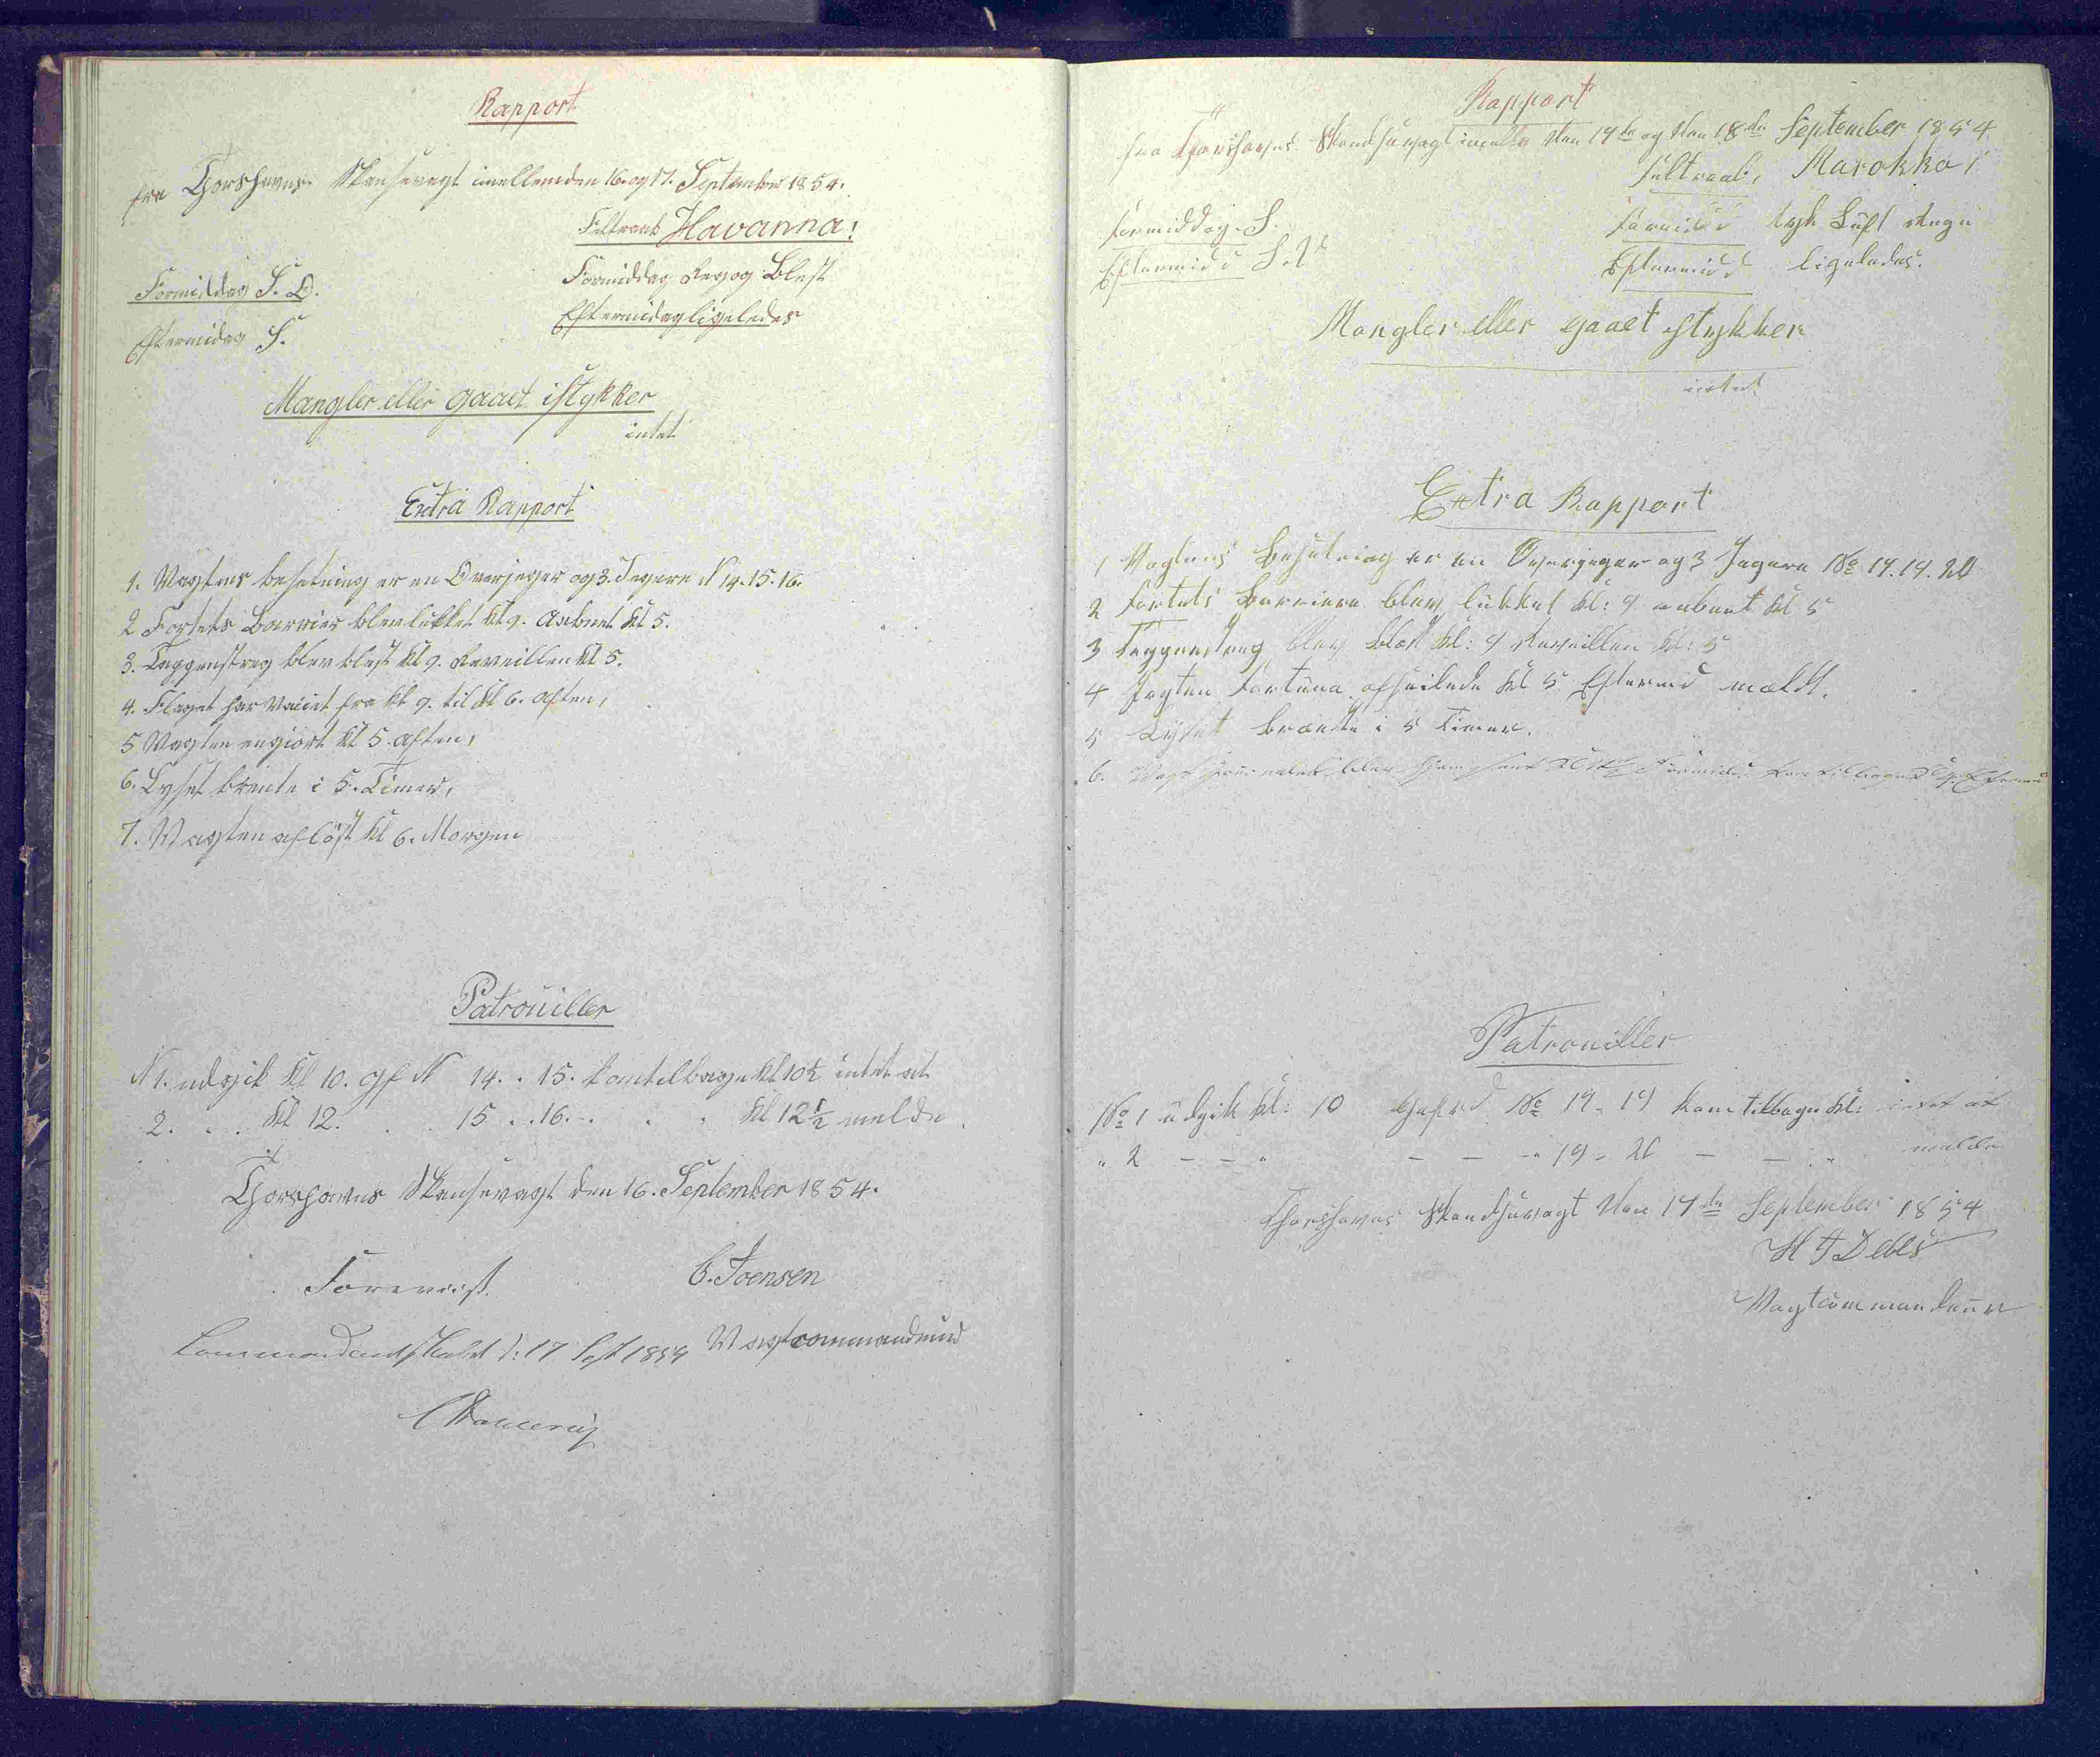 Rapport
fra Thorshavns Skansevagt imellem den 16. og 17. September 1854.
Feltraab Havanna!
Formiddag S. O.
Formiddag Regn og Blest
Eftermidag S.
Eftermidag ligeledes
Mangler eller gaaet istykker
intet
Extra Rapport
1. Vagtens besetning er en Overjeger og 3. Jegere N 14. 15. 16.
2 Fortets Barrier blev lukket Kl 9. Aabnet Kl 5.
3. Tappenstreg blev blest Kl 9. Reveillen Kl 5.
4. Flaget har Vaiet fra Kl 9. til Kl 6. Aften,
5 Vagten rengiort Kl 5. Aften,
6. Lyset brente i 5. Timer,
7. Vagten aflöst Kl 6. Morgen
Patrouiller
N 1. udgik Kl 10. Gf N 14. . 15. kom tilbage Kl 10½ intet at
2. . . Kl 12. . . 15 . . 16. . . . Kl 12½ melde.
Thorshavns Skansevagt den 16. September 1854.
Forevist.
C. Joensen
Commandantskabet d: 17 Sept 1854
Vagtcommandeur
Rapport
fra Thorshavns Skandsevagt imellem den 17de og den 18de September 1854
Feltraab, Marokko!
Formiddag. S.
Formidd tyk Luft Regn
Eftermidd S.V
Eftermidd ligeledes.
Mangler eller gaaet istykker
intet
Extra Rapport
1 Vagtens Besætning er en Overjæger og 3 Jægere No 17. 19. 20
2 Fortets Barriere blev lukket Kl: 9 aabnet Kl 5
3 Tappenstreg blev blæst Kl: 9 Reveillen Kl: 5
4 Jagten Fortuna afseilede Kl 5 Eftermd meldt.
5 Lyset brændte i 5 Timer.
6. Vagt
Patrouiller
No 1 udgik Kl: 10 Gefrd No 17 - 19 kom tilbage Kl: intet at
" 2 - - " - - - " 19 - 20 - - " melde
Thorshavns Skandsevagt den 17de September 1854
H J Debes
Vagtcommandeur